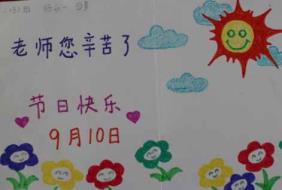 老师您辛苦了
节日快乐
9月10日